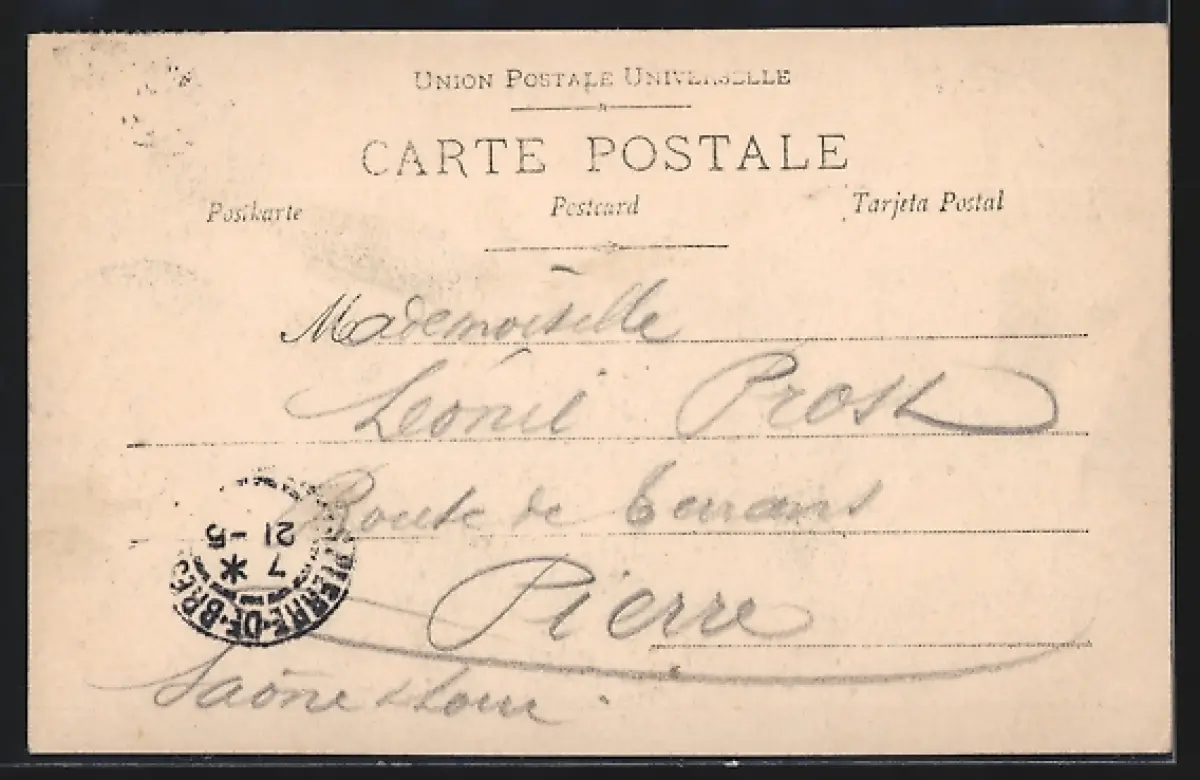 UNION POSTALE UNIVERSELLE
CARTE POSTALE
Postkarte Postcard Tarjeta Postal
Mademoiselle
Léonie Prost
Route de
Pierre
Saône & Loire
PIERRE-DE-BRES
7 *
21 -5